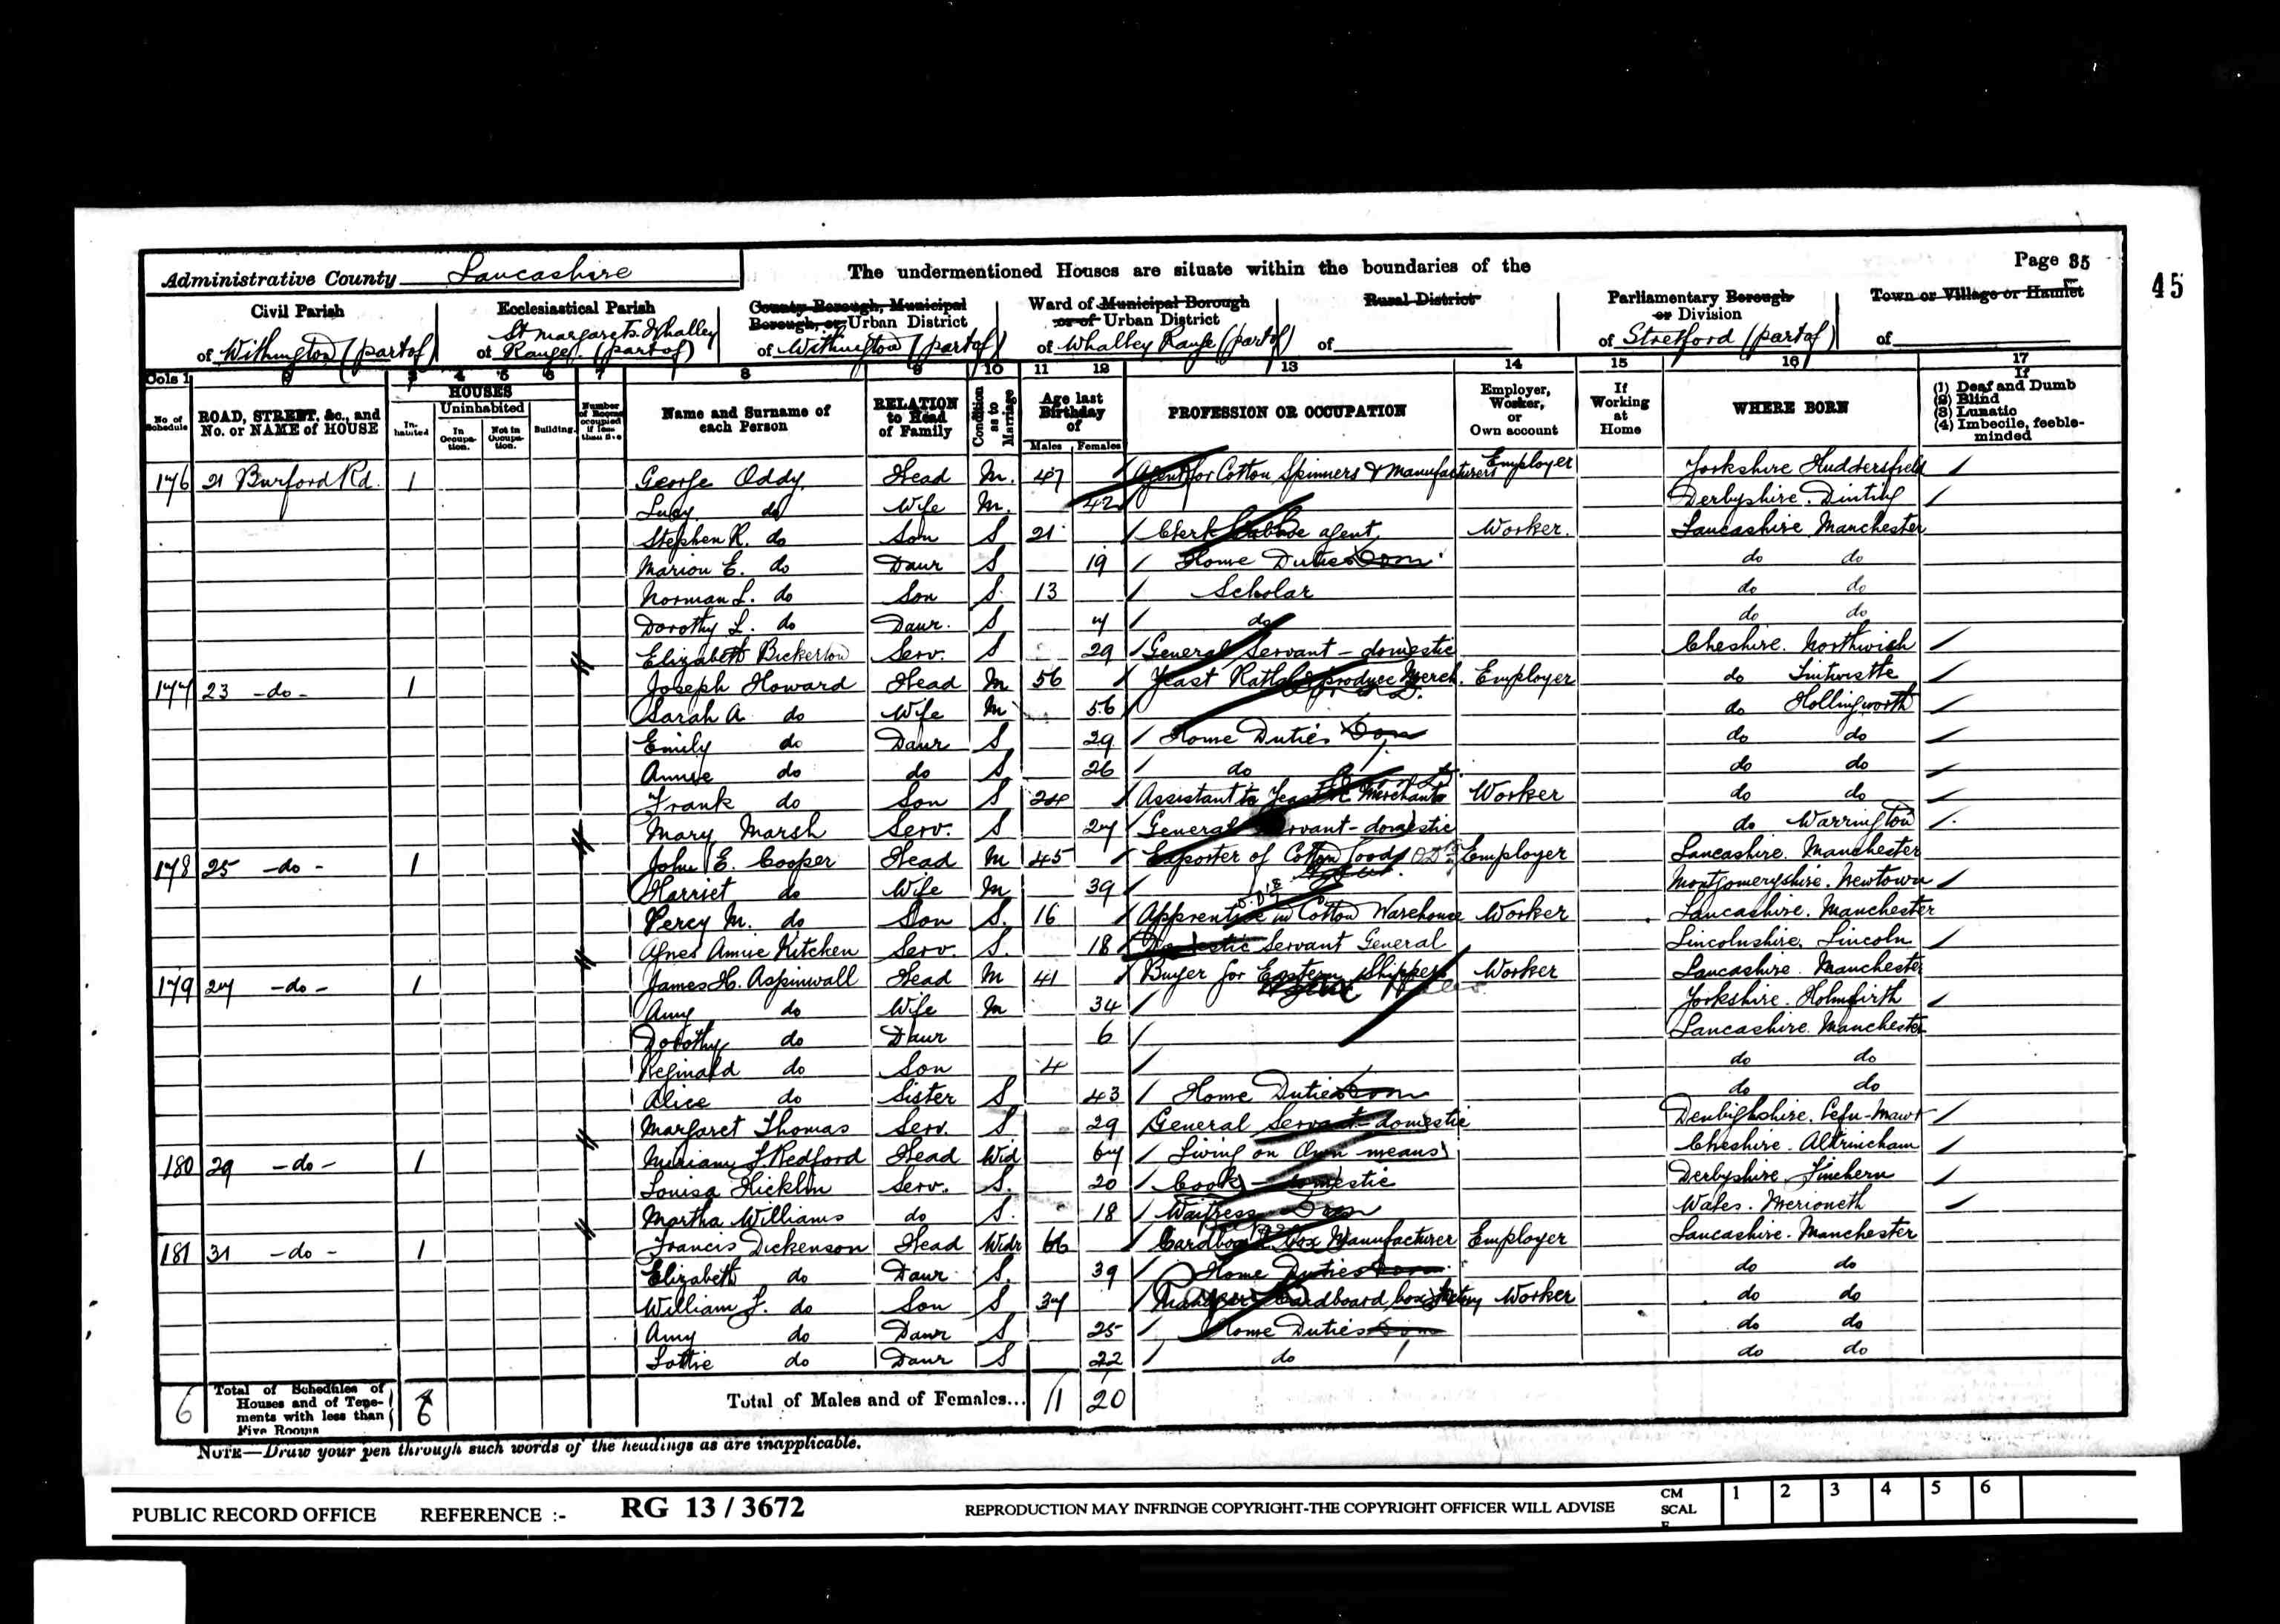 Page 35
45
Administrative County Lancashire
The undermentioned Houses are situate within the boundaries of the
Civil Parish of Withington (part of)
Ecclesiastical Parish of St Margarets Whalley Range (part of)
County Borough, Municipal Borough, or Urban District of Withington (part of)
Ward of Municipal Borough or of Urban District of Whalley Range (part of)
Rural District of
Parliamentary Borough or Division of Stretford (part of)
Town or Village or Hamlet of
Cols 1 2 3 4 5 6 7 8 9 10 11 12 13 14 15 16 17
No of Schedule
ROAD, STREET, &c., and No. or NAME of HOUSE
HOUSES
Inhabited
Uninhabited
In Occupation.
Not in Occupation.
Building.
Number of Rooms occupied if less than five
Name and Surname of each Person
RELATION to Head of Family
Condition as to Marriage
Age last Birthday of
Males Females
PROFESSION OR OCCUPATION
Employer, Worker, or Own account
If Working at Home
WHERE BORN
If
(1) Deaf and Dumb
(2) Blind
(3) Lunatic
(4) Imbecile, feeble-minded
176 21 Burford Rd. 1 George Oddy Head M. 47 Agent for Cotton Spinners & Manufacturers Employer Yorkshire Huddersfield
Lucy do Wife M. 42 Derbyshire. Dinting
Stephen R. do Son S 21 Clerk agent Worker. Lancashire. Manchester
Marion E. do Daur S 19 Home Duties do do
Norman L. do Son S. 13 Scholar do do
Dorothy L. do Daur. S 7 do do do
Elizabeth Bickerton Serv. S 29 General Servant - domestic Cheshire. Northwich
177 23 -do- 1 Joseph Howard Head M 56 Yeast produce Merch. Employer do Tintwistle
Sarah A do Wife M 56 do Hollingworth
Emily do Daur S 29 Home Duties do do
Annie do do S 26 do do do
Frank do Son S 24 Assistant to Yeast Merchant Worker do do
Mary Marsh Serv. S 27 General Servant - domestic do Warrington
178 25 -do- 1 John E. Cooper Head M 45 Exporter of Cotton Goods Employer Lancashire. Manchester
Harriet do Wife M 39 Montgomeryshire. Newtown
Percy M. do Son S. 16 Apprentice in Cotton Warehouse Worker Lancashire. Manchester
Agnes Annie Kitchen Serv. S. 18 Domestic Servant General Lincolnshire. Lincoln
179 27 -do- 1 James H. Aspinwall Head M 41 Buyer for Eastern Shippers Worker Lancashire. Manchester
Amy do Wife M 34 Yorkshire. Holmfirth
Dorothy do Daur 6 Lancashire. Manchester
Reginald do Son 4 do do
Alice do Sister S 43 Home Duties do do
Margaret Thomas Serv. S 29 General Servant - domestic Denbighshire. Cefn-Mawr
180 29 -do- 1 Miriam J. Redford Head Wid 67 Living on Own means Cheshire. Altrincham
Louisa Hicklin Serv. S. 20 Cook - domestic Derbyshire
Martha Williams do S. 18 Waitress Wales. Merioneth
181 31 -do- 1 Francis Dickenson Head Widr 66 Cardboard Box Manufacturer Employer Lancashire. Manchester
Elizabeth do Daur S. 39 Home Duties do do
William J. do Son S 37 Manager Cardboard box factory Worker do do
Amy do Daur S 25 Home Duties do do
Lottie do Daur S 22 do do do
6 Total of Schedules of Houses and of Tenements with less than Five Rooms 6 Total of Males and of Females... 11 20
NOTE—Draw your pen through such words of the headings as are inapplicable.
PUBLIC RECORD OFFICE REFERENCE :- RG 13 / 3672 REPRODUCTION MAY INFRINGE COPYRIGHT-THE COPYRIGHT OFFICER WILL ADVISE CM SCALE 1 2 3 4 5 6